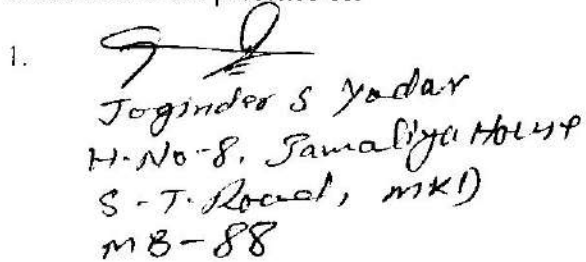 1.
Joginder S Yadav
H.No-8, Jamaliya House
S.T. Road, MKD
MB-88